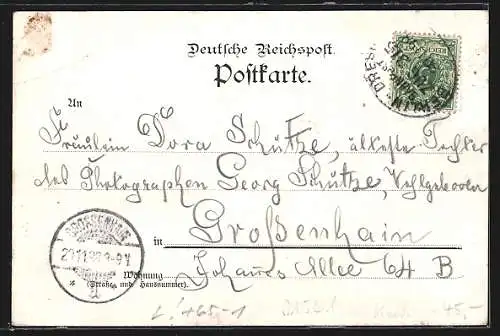 Deutsche Reichspost.
Postkarte.
An
Fräulein Dora Schütze, älteste Tochter
des Photographen Georg Schütze, Wohlgeboren
in Großenhain
Wohnung
(Straße und Hausnummer)
Johannes Allee 64 B
GROSSENHAIN
BERLIN DRES
45,-